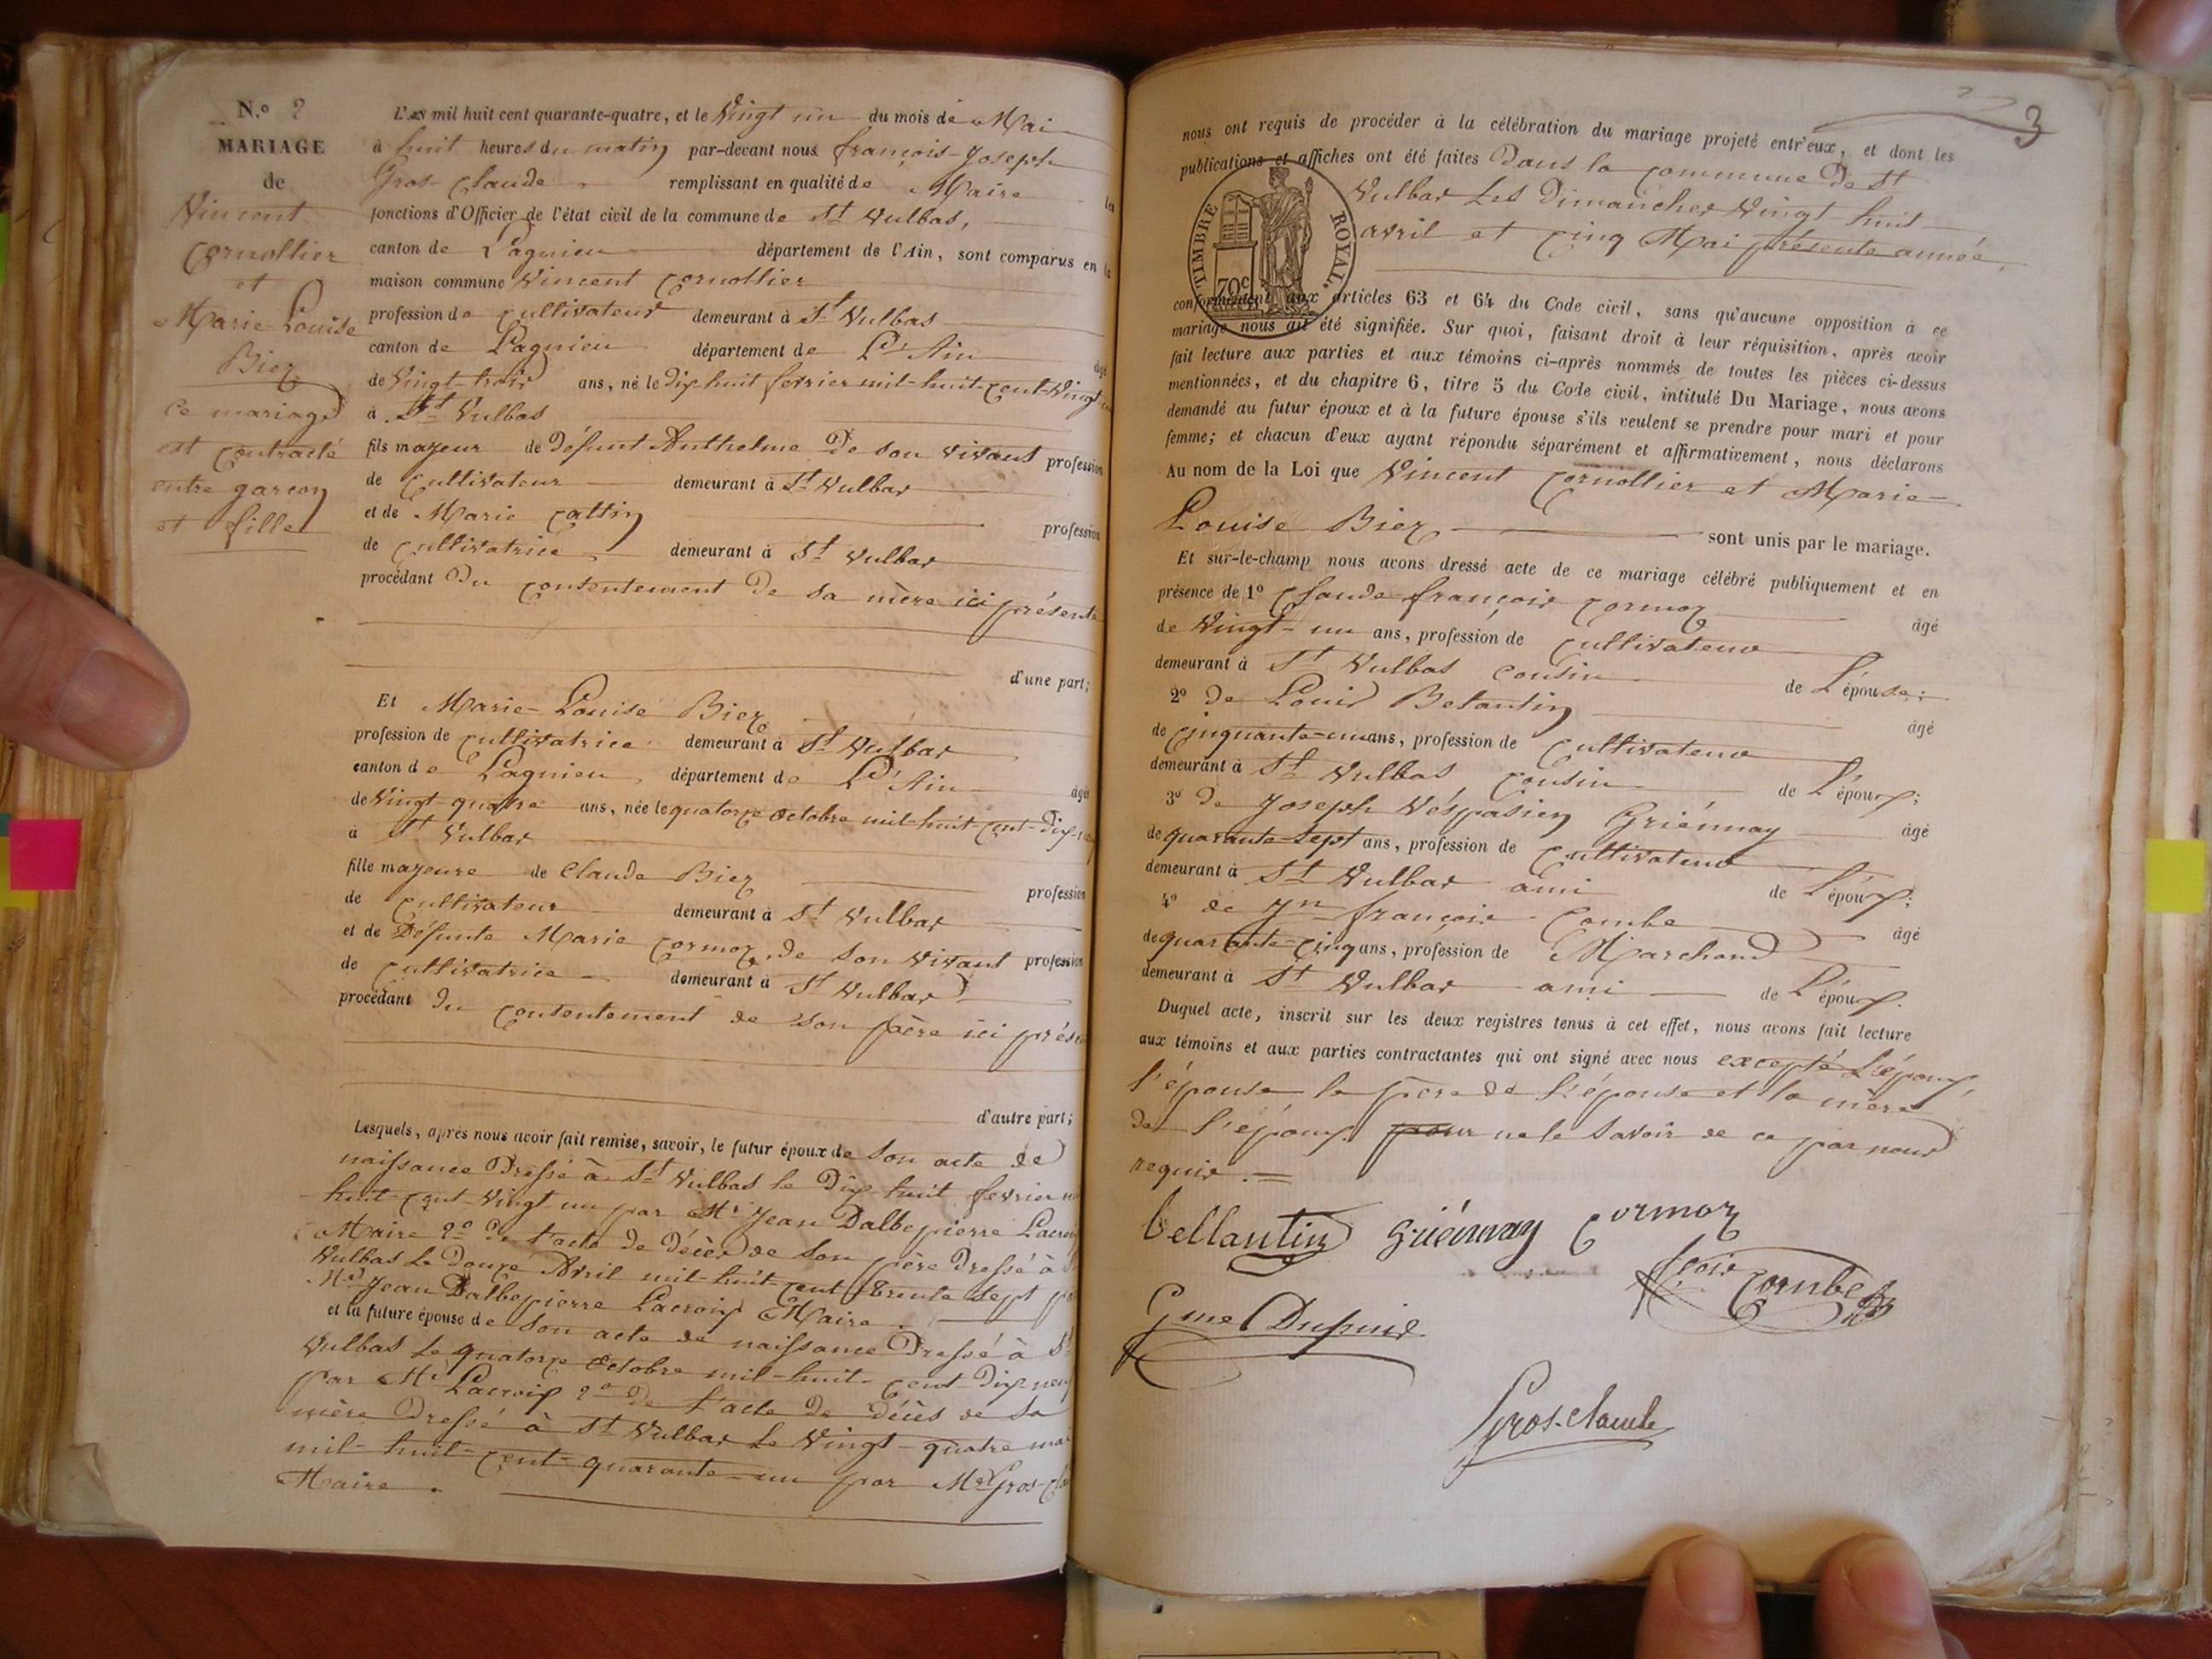 N.º 2
MARIAGE
de
Vincent
Cornollier
et
Marie Louise
Biez
Ce mariage
est contracté
entre garçon
et fille
L'an mil huit cent quarante-quatre, et le Vingt un du mois de Mai
à huit heures du matin par-devant nous françois-Joseph
Gros-Claude remplissant en qualité de Maire les
fonctions d'Officier de l'état civil de la commune de St Vulbas,
canton de Lagnieu département de l'Ain, sont comparus en la
maison commune Vincent Cornollier
profession de Cultivateur demeurant à St Vulbas
canton de Lagnieu département de L'Ain âgé
de Vingt-trois ans, né le Dix huit fevrier mil-huit-cent-Vingt-un
à St Vulbas
fils majeur de défunt Anthelme de son vivant profession
de Cultivateur demeurant à St Vulbas
et de Marie Cattin profession
de Cultivatrice demeurant à St Vulbas
procédant Du consentement De Sa mère ici présente
d'une part;
Et Marie-Louise Biez
profession de Cultivatrice demeurant à St Vulbas
canton de Lagnieu département de L'Ain âgée
de Vingt-quatre ans, née le quatorze Octobre mil-huit-cent-Dix-neuf
à St Vulbas
fille majeure de Claude Biez profession
de Cultivateur demeurant à St Vulbas
et de Défunte Marie Cormoz, de son vivant profession
de Cultivatrice demeurant à St Vulbas
procédant Du consentement de son père ici prés
d'autre part;
Lesquels, après nous avoir fait remise, savoir, le futur époux de Son acte de
naissance Dressé à St Vulbas le Dix-huit fevrier mil
huit-cent-Vingt-un par Mr Jean Dalbepierre Lacroix
Maire 2º de l'acte de décès de Son père Dressé à St
Vulbas Le Douze Avril mil-huit-cent trente Sept par
Mr Jean Dalbepierre Lacroix Maire.
et la future épouse de Son acte de naissance Dressé à St
Vulbas Le quatorze Octobre mil-huit-cent-Dix neuf
par Mr Lacroix 2º de l'acte De décès de Sa
mère Dressé à St Vulbas Le Vingt-quatre mai
mil-huit-cent-quarante-un par Mr Gros-Cla
Maire.
3
nous ont requis de procéder à la célébration du mariage projeté entr'eux, et dont les
publications et affiches ont été faites Dans la commune De St
Vulbas Les Dimanches Vingt-huit
avril et Cinq Mai présente année,
TIMBRE ROYAL.
70c
conformément aux articles 63 et 64 du Code civil, sans qu'aucune opposition à ce
mariage nous ait été signifiée. Sur quoi, faisant droit à leur réquisition, après avoir
fait lecture aux parties et aux témoins ci-après nommés de toutes les pièces ci-dessus
mentionnées, et du chapitre 6, titre 5 du Code civil, intitulé Du Mariage, nous avons
demandé au futur époux et à la future épouse s'ils veulent se prendre pour mari et pour
femme; et chacun d'eux ayant répondu séparément et affirmativement, nous déclarons
Au nom de la Loi que Vincent Cornollier et Marie-
Louise Biez sont unis par le mariage.
Et sur-le-champ nous avons dressé acte de ce mariage célébré publiquement et en
présence de 1º Claude-françois Cormoz âgé
de Vingt-un ans, profession de Cultivateur
demeurant à St Vulbas cousin de L'épouse;
2º De Louis Belantin âgé
de Cinquante-un ans, profession de Cultivateur
demeurant à St Vulbas Cousin de L'époux;
3º De Joseph Véspasien Griénnay âgé
de quarante-Sept ans, profession de Cultivateur
demeurant à St Vulbas ami de L'époux;
4º de Jn françois Combe âgé
de quarante-Cinq ans, profession de Marchand
demeurant à St Vulbas ami de L'époux.
Duquel acte, inscrit sur les deux registres tenus à cet effet, nous avons fait lecture
aux témoins et aux parties contractantes qui ont signé avec nous excepté L'époux,
l'épouse le père de l'épouse et la mère
de l'époux pour ne le Savoir de ce par nous
requis.
bellantin Griénnay Cormoz
fcois Combe
Gme Dupuis
Gros-claude